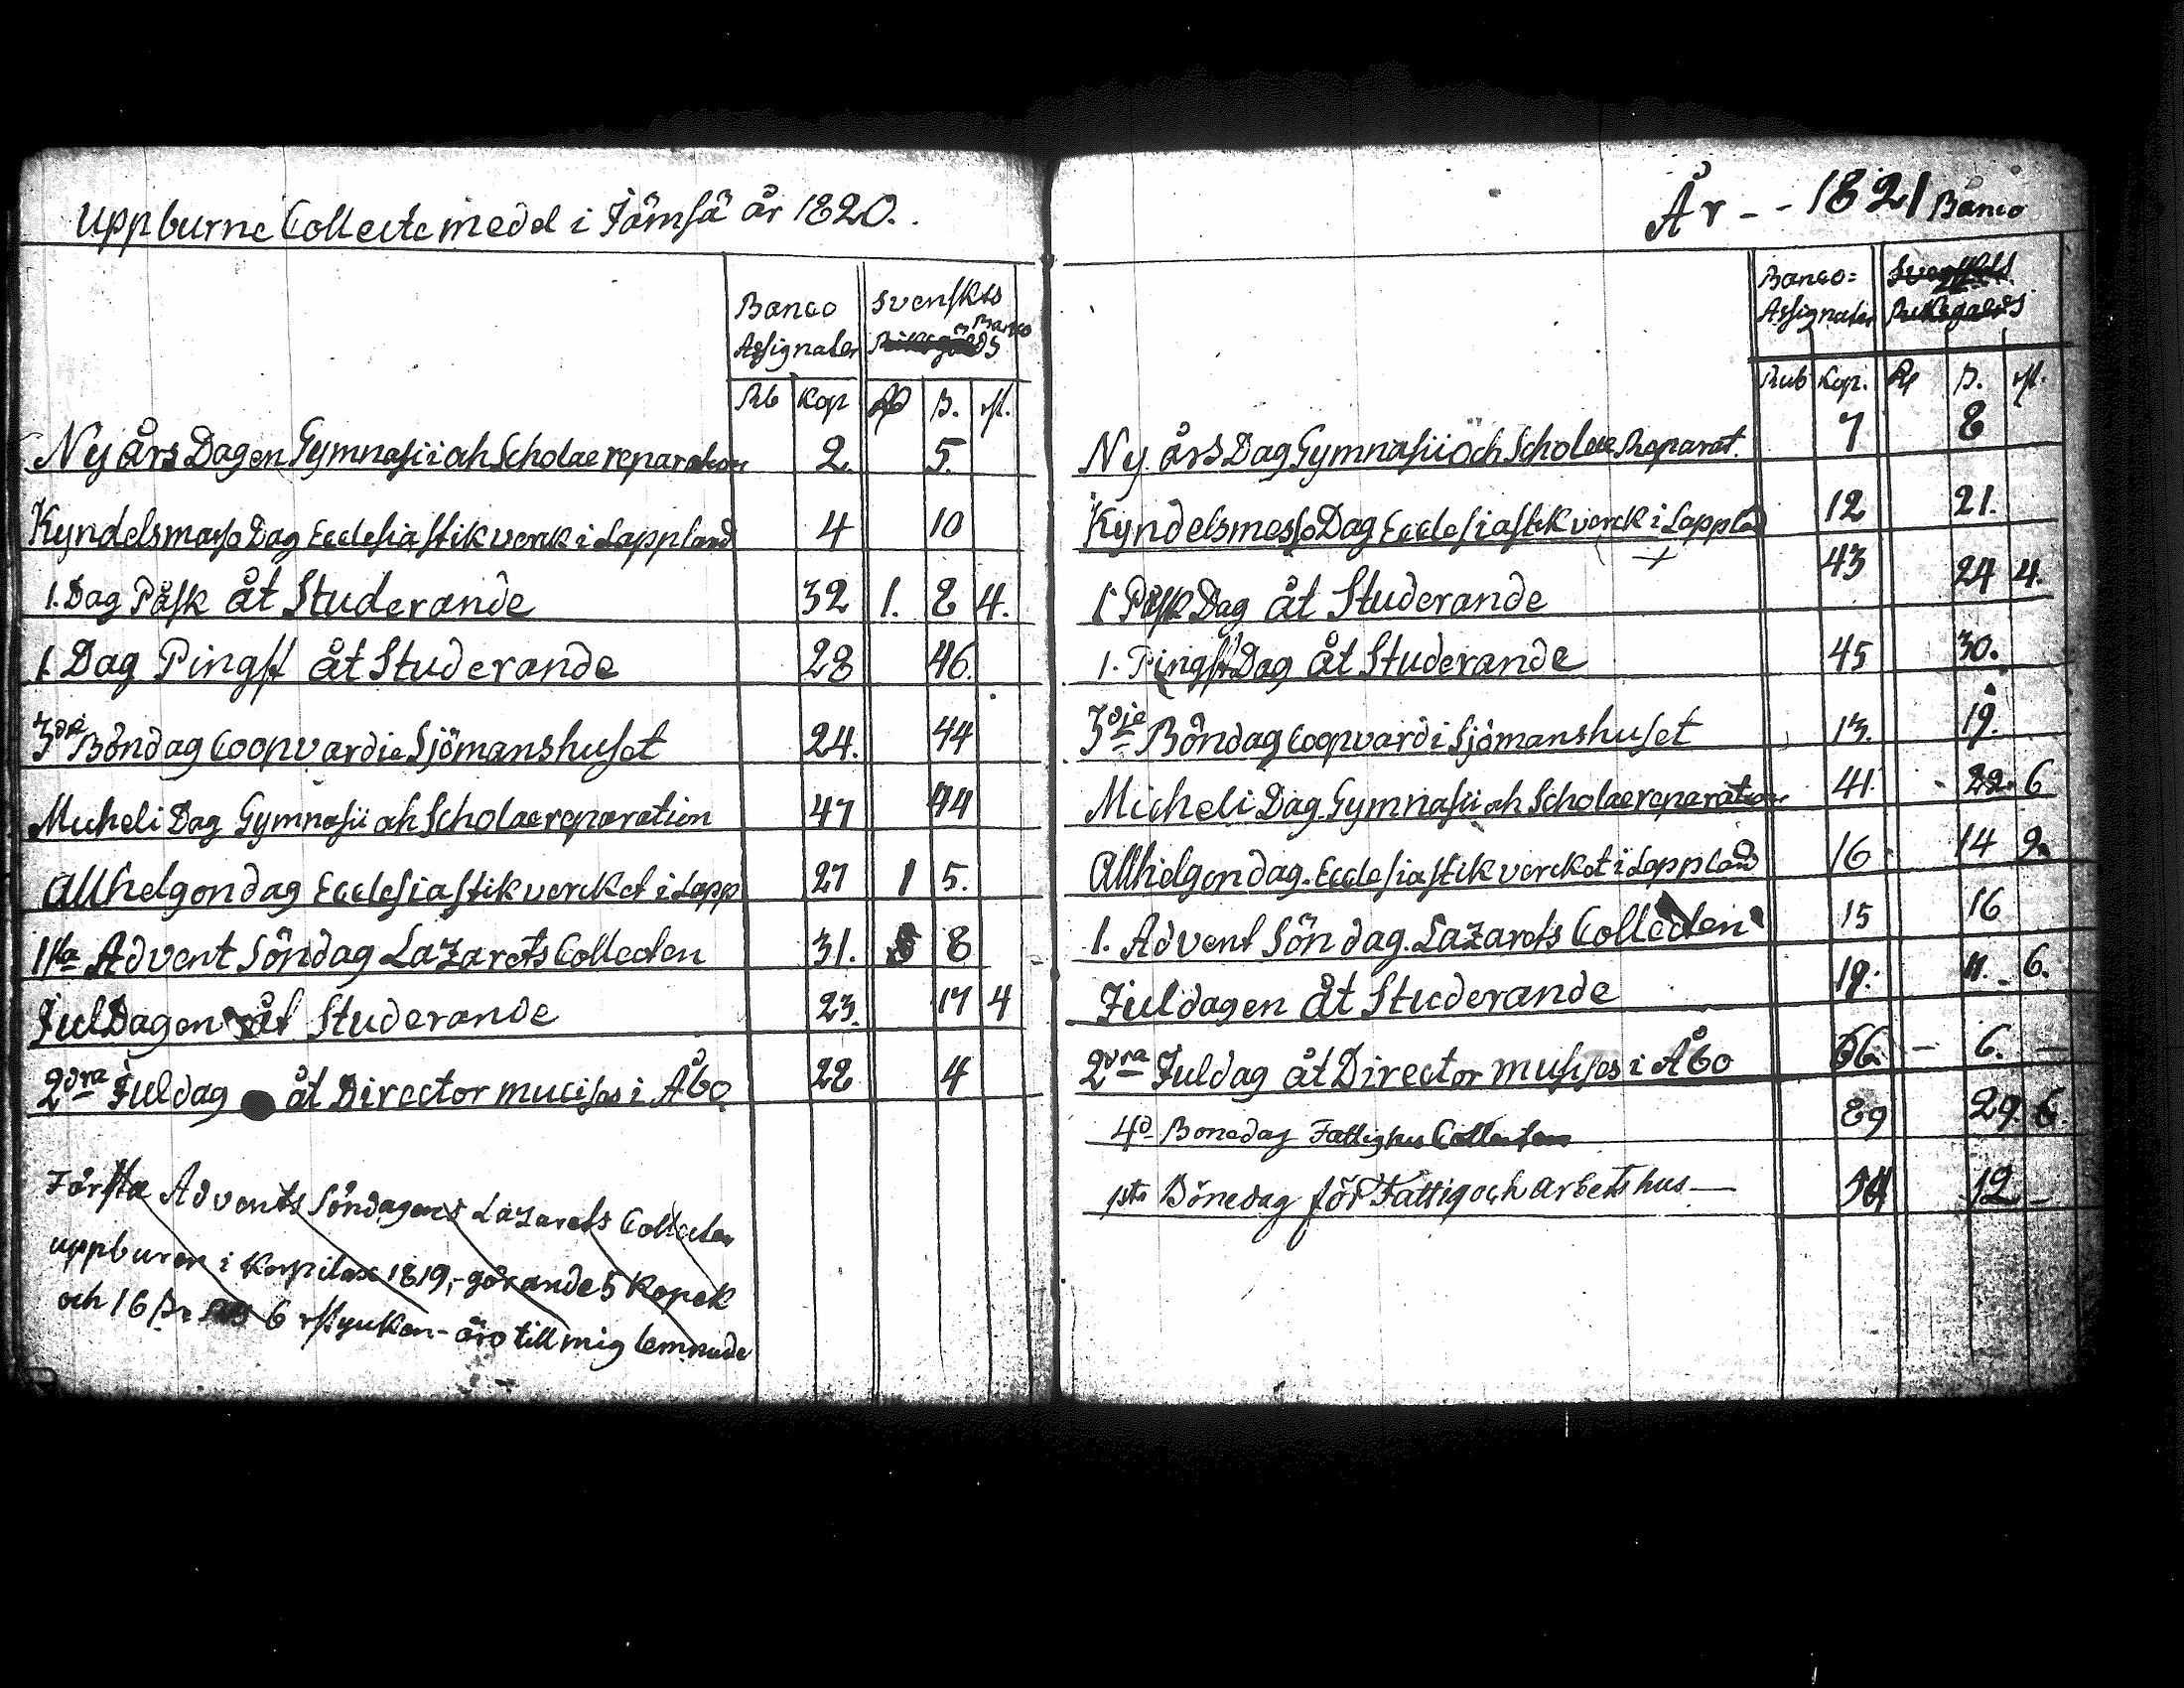 Uppburne Collecte medel i Jämsä år 1820.
Banco Svenskts
Assignater Riksgälds Banco
Rb Kop B. rst.
Ny års Dagen Gymnasii och Scholae reparation 2. 5.
Kyndelsmässo Dag Ecclesiastik verk i Lappland 4 10
1. Dag Påsk åt Studerande 32 1. 8 4.
1. Dag Pingst åt Studerande 28 46.
3die Böndag Coopvardie Sjömanshuset 24. 44
Micheli Dag Gymnasii och Scholae reparation 47 44
Allhelgondag Ecclesiastik vercket i Lapp 27 1 5.
1sta Advent Söndag Lazarets Collecten 31. 8
Jul Dagen åt Studerande 23. 17 4
2dra Juldag åt Director musices i Åbo 28 4
Första Advents Söndagens Lazarets Collecten
uppburen i Korpilax 1819,- görande 5 Kopek
och 16 6 rstycken- äro till mig lemnade
År - - 1821 Banco
Banco= Svenskts
Assignater Riksgälds
Rub Kop. Rd B. rst.
Ny års Dag Gymnasii och Scholae Reparat. 7 8
Kyndelsmesso Dag Ecclesiastik verck i Lappld 12 21.
1 Påsk Dag åt Studerande 43 24 4.
1. Pingst Dag åt Studerande 45 30.
3dje Böndag Coopvardi Sjömanshuset 13. 19.
Micheli Dag Gymnasii och Scholae reparation 41. 22. 6
Allhelgondag. Ecclesiastik vercket i Lappland 16 14 9.
1. Advent Söndag. Lazarets Collecten 15 16
Juldagen åt Studerande 18. 11. 6.
2dra Juldag åt Director musices i Åbo 66. - 6. -
4d Bonedag Fattighus Collecten 89 29. 6.
1sta Bönedag för Fattig och Arbetshus - 54 12 -